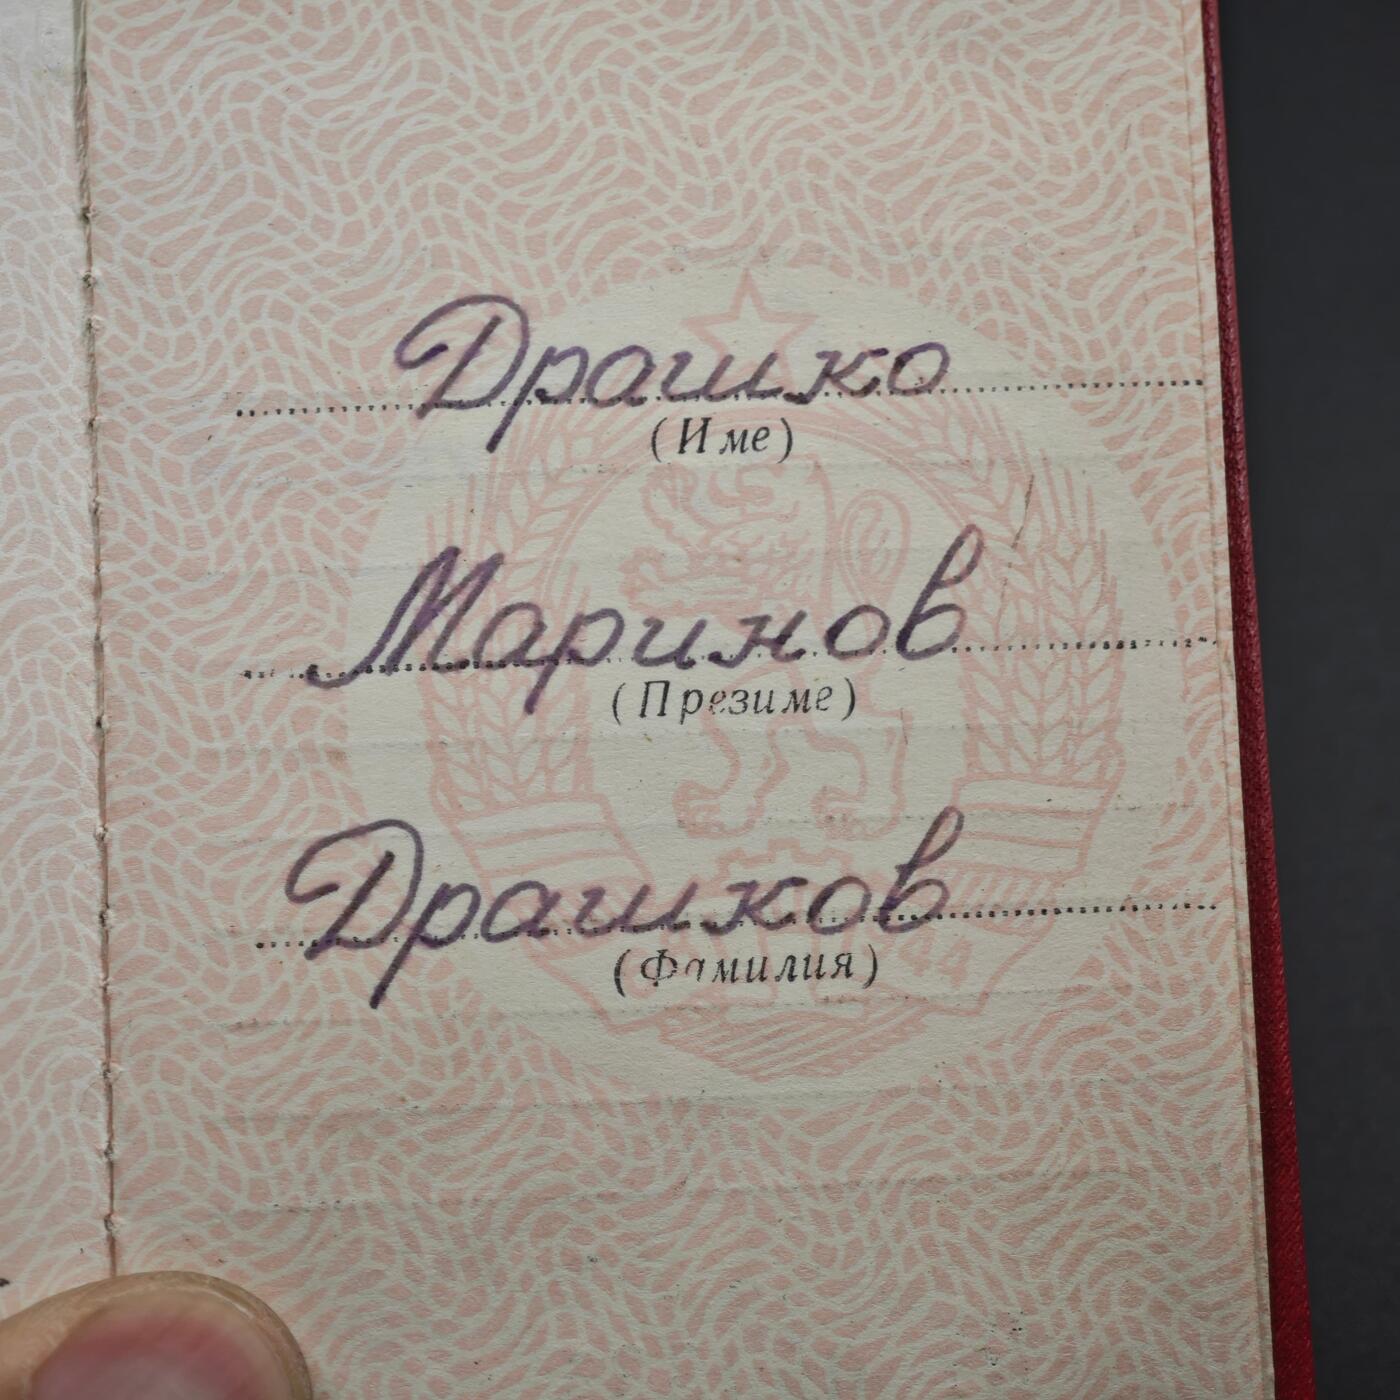 Драшко
(Име)
Маринов
(Презиме)
Драшков
(Фамилия)